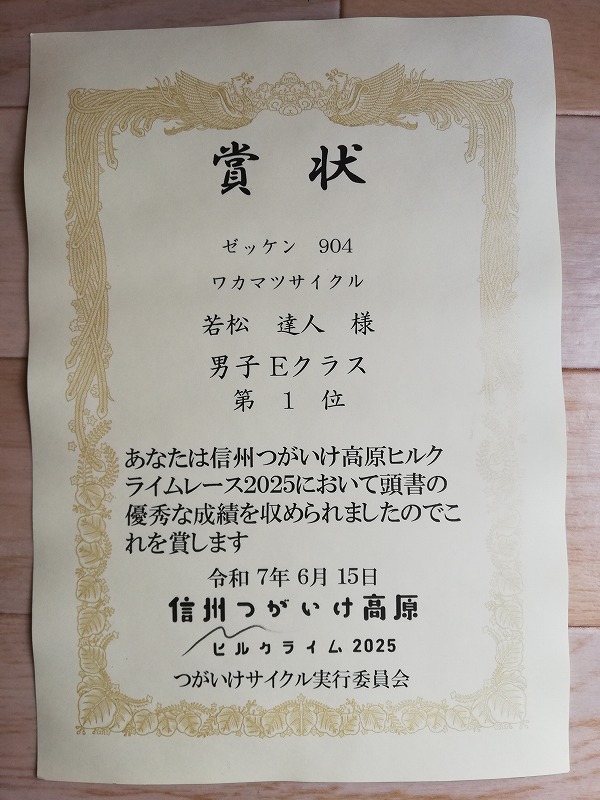 賞状
ゼッケン 904
ワカマツサイクル
若松 達人 様
男子Eクラス
第 1 位
あなたは信州つがいけ高原ヒルク
ライムレース2025において頭書の
優秀な成績を収められましたのでこ
れを賞します
令和 7年 6月 15日
信州つがいけ高原
ヒルクライム 2025
つがいけサイクル実行委員会